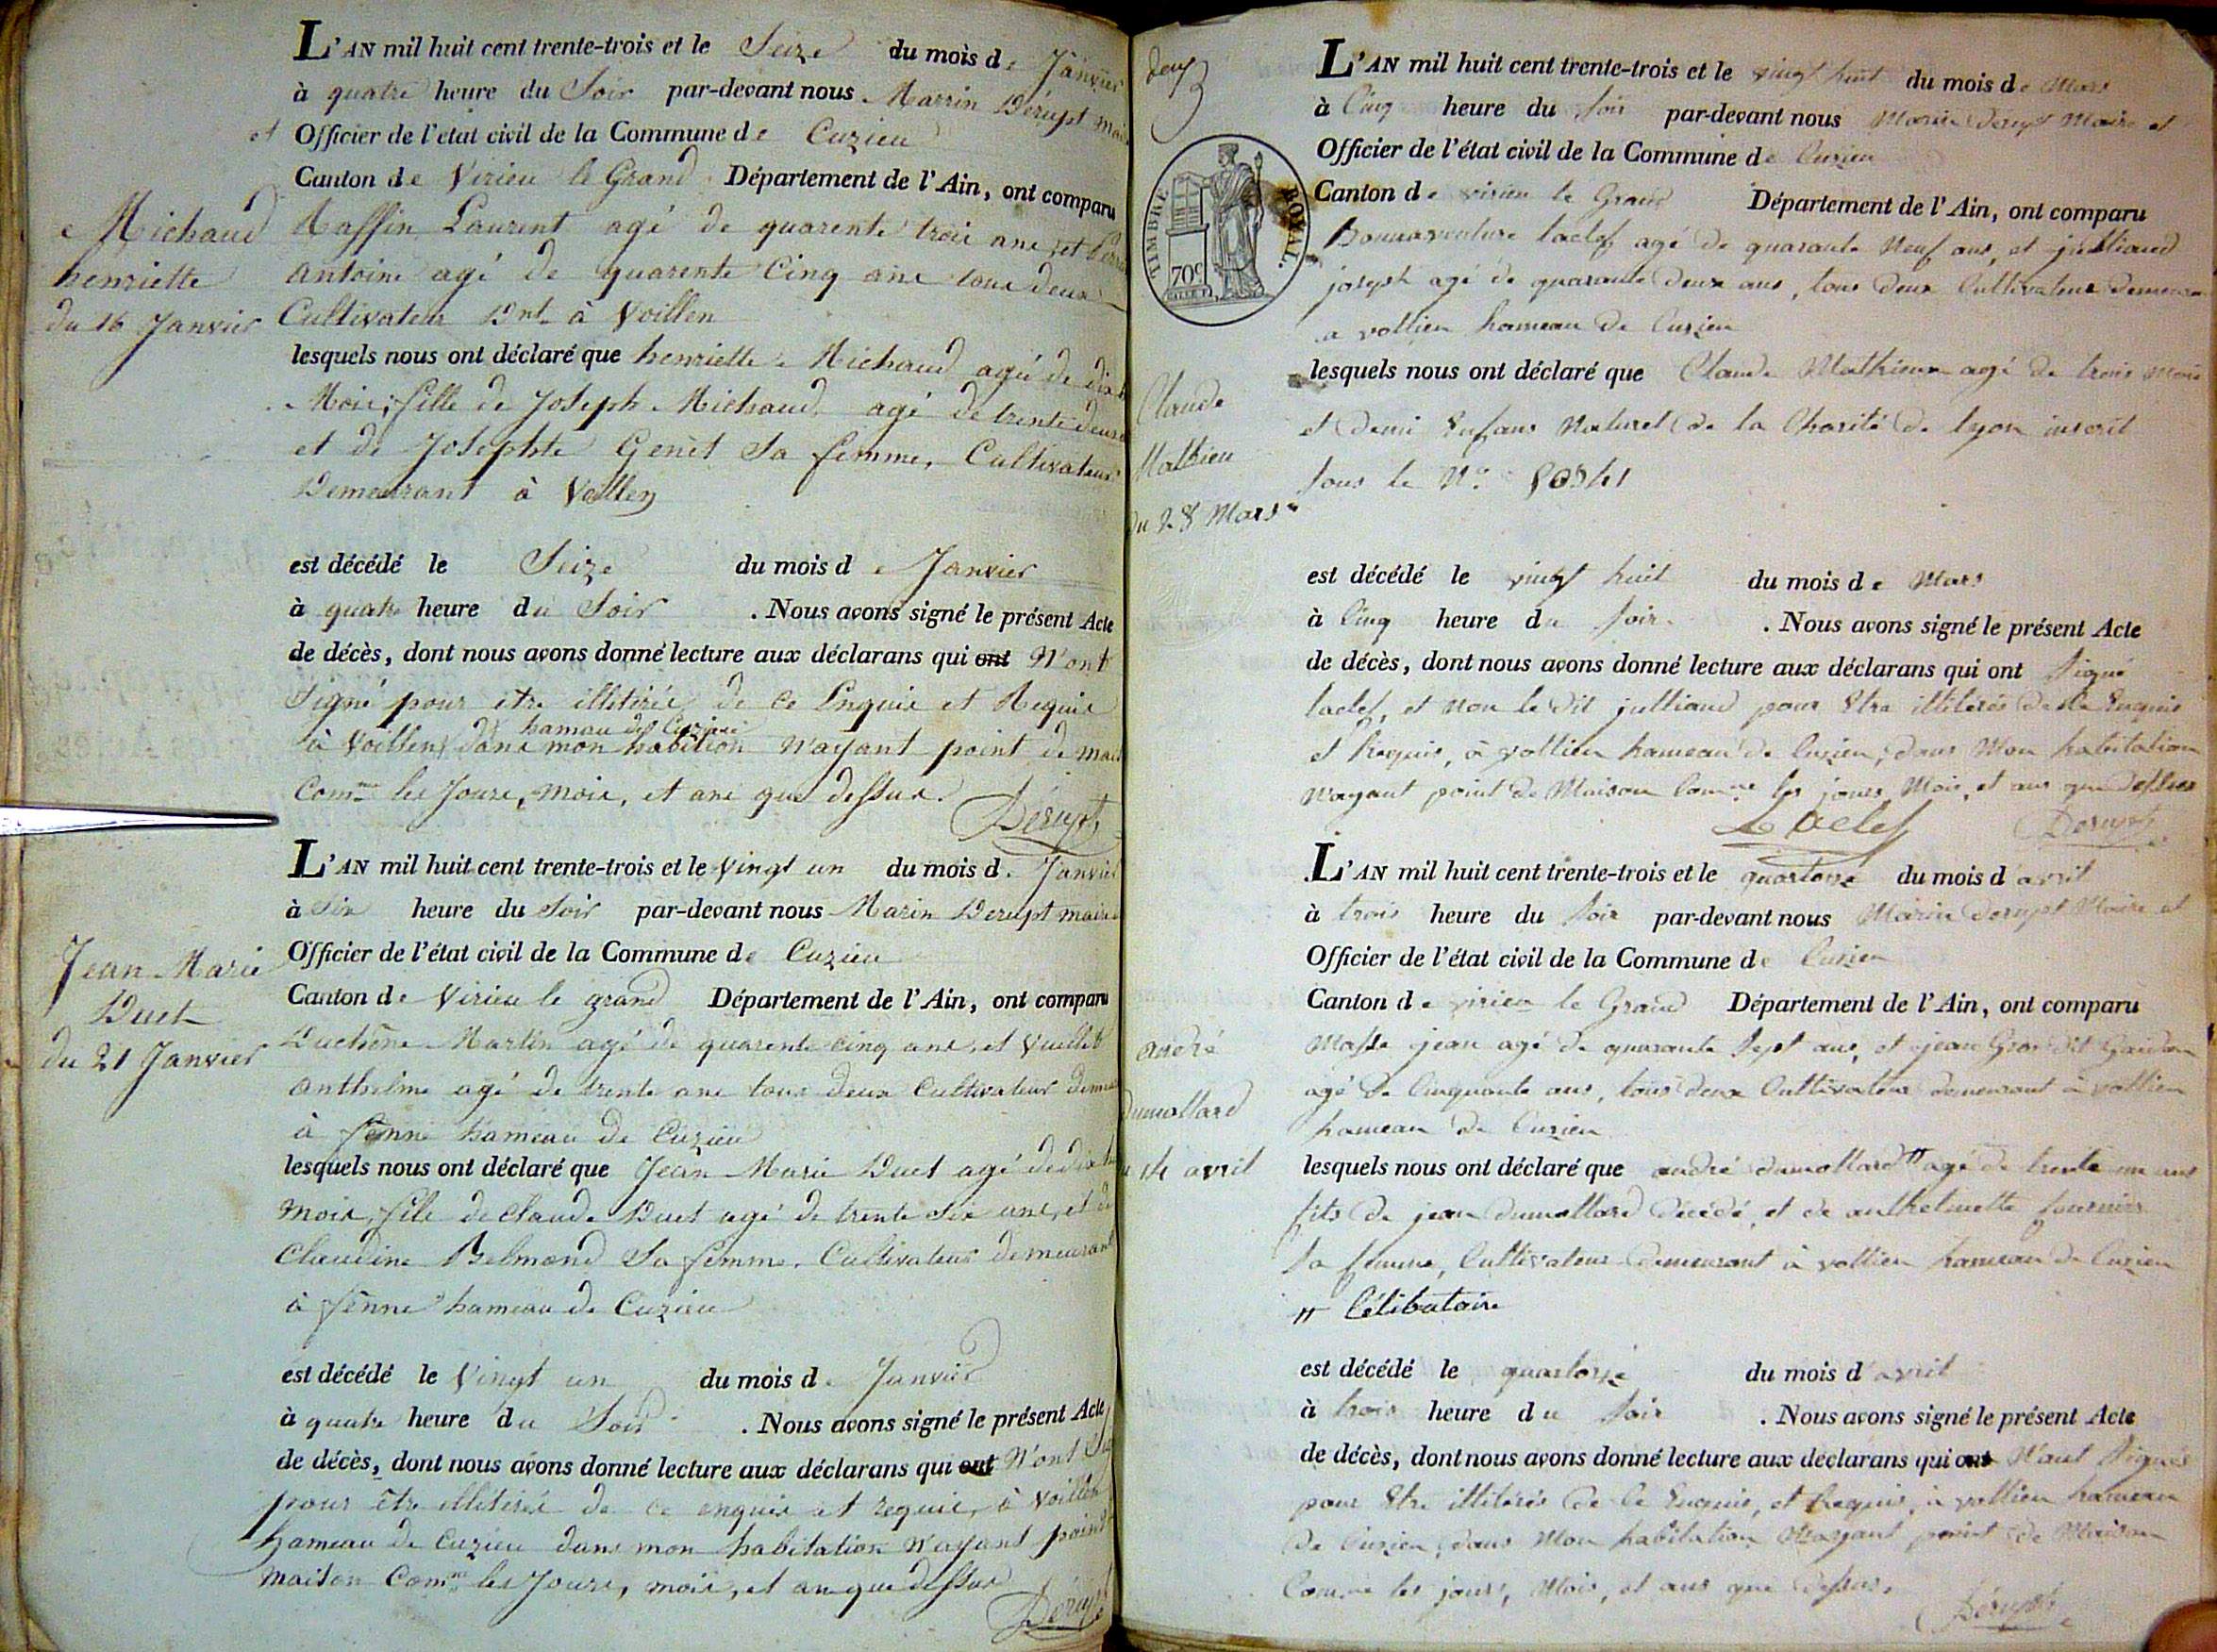 L'AN mil huit cent trente-trois et le Seize du mois de Janvier
à quatre heure du Soir par-devant nous Marrin Dérupt mai
et Officier de l'état civil de la Commune de Cuzieu
Canton de Virieu le Grand Département de l'Ain, ont comparu
Michaud
henriette
du 16 Janvier
Laurent agé de quarente trois ans et
Antoine agé de quarente Cinq ans tous deux
Cultivateur Dnt à Voillen
lesquels nous ont déclaré que henriette Michaud agé de
Mois, fille de Joseph Michaud agé de trente deux
et de Josephte Genet Sa femme, Cultivateur
Demeurant à Vollien
est décédé le Seize du mois de Janvier
à quatre heure du Soir . Nous avons signé le présent Acte
de décès, dont nous avons donné lecture aux déclarans qui ont N'ont
Signé pour etre illitirée de Ce Enquis et Requis
hamau de Cuzieu
à Voillen dans mon habition N'ayant point de mai
Com.ne les Jours, mois, et ans que dessus.
Dérupt
L'AN mil huit cent trente-trois et le Vingt un du mois de Janvier
à Six heure du Soir par-devant nous Marin Derupt maire
Officier de l'état civil de la Commune de Cuzieu
Canton de Virieu le grand Département de l'Ain, ont comparu
Jean Marie
Duet
du 21 Janvier
Duchêne Martin agé de quarente cinq ans, et Vuillet
Anthelme agé de trente ans tous deux Cultivateur deme
à fenne hameau de Cuzieu
lesquels nous ont déclaré que Jean Marie Duet agé de dix
mois, fils de Claude Duet agé de trente Six ans, et de
Claudine Belmond Sa femme, Cultivateur demeurant
à fênne hameau de Cuzieu
est décédé le Vingt un du mois de Janvier
à quatre heure du Soir . Nous avons signé le présent Acte
de décès, dont nous avons donné lecture aux déclarans qui ont N'ont
pour être illitirée de ce enquis et requis, à Voillen
hameau de Cuzieu dans mon habitation N'ayant point
maison Com.ne les Jours, mois, et an que dessus
Dérupt
deux
TIMBRE ROYAL.
70c
L'AN mil huit cent trente-trois et le vingt huit du mois de Mars
à Cinq heure du Soir par-devant nous Marin Derupt Maire et
Officier de l'état civil de la Commune de Cuzieu
Canton de virieu le Grand Département de l'Ain, ont comparu
Bonnaventure laclef agé de quarante Neuf ans, et julliand
joseph agé de quarante deux ans, tous deux Cultivateur demeura
a vollien hameau de Cuzieu
Claude
Mathieu
du 28 Mars
lesquels nous ont déclaré que Claude Mathieux agé de trois mois
et demi Enfans Naturel de la Charité de lyon inscrit
sous le N°
est décédé le vingt huit du mois de Mars
à Cinq heure du Soir. . Nous avons signé le présent Acte
de décès, dont nous avons donné lecture aux déclarans qui ont Signé
laclef, et non le dit julliand pour Etre illitérés de Ce Enquis
et Requis, à vollien hameau de Cuzien, dans Mon habitation
Nayant point de Maison Comune les jours, Mois, et ans que dessus
Laclef Derupt
L'AN mil huit cent trente-trois et le quatorse du mois d avril
à trois heure du Soir par-devant nous Marin derupt Maire et
Officier de l'état civil de la Commune de Cuzieu
Canton de virieu le Grand Département de l'Ain, ont comparu
andré
dumollard
du 14 avril
Masse jean agé de quarante Sept ans, et jean Gros dit
agé de Cinquante ans, tous deux Cultivateur demeurant à vollien
hameau de Cuzieu
lesquels nous ont déclaré que andré dumollard " agé de trente un ans
fils de jean dumollard decédé, et de anthelmette fournier
Sa femme, Cultivateur demeurant à vollien hameau de Cuzieu
" Célibataire
est décédé le quatorse du mois d avril
à trois heure du Soir . Nous avons signé le présent Acte
de décès, dont nous avons donné lecture aux déclarans qui ont N'ont Signés
pour Etre illitérés de Ce Enquis, et Requis, à vollien hameau
de Cuzien, dans Mon habitation Nayant point de Maison
Comune les jours, Mois, et ans que dessus.
Dérupt